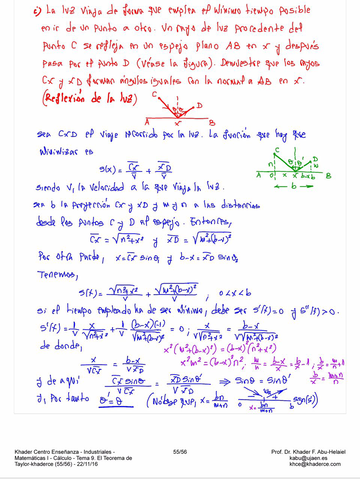 c) La luz viaja de forma que emplea el mínimo tiempo posible
en ir de un punto a otro. Un rayo de luz procedente del
punto C se refleja en un espejo plano AB en x y después
pasa por el punto D (véase la figura). Demuestre que los rayos
Cx y xD forman ángulos iguales con la normal a AB en x.
(Reflexión de la luz)
C
D
A x B
Sea CxD el viaje recorrido por la luz. La función que hay que
minimizar es
S(x) = Cx/V + xD/V
siendo V, la velocidad a la que viaja la luz.
Sea b la proyección Cx y xD y m y n a las distancias
desde los puntos C y D al espejo. Entonces,
Cx = √n²+x² y xD = √m²+(b-x)²
Por otra parte, x = Cx sen θ, y b-x = xD sen θ'
Tenemos,
S(x) = √n²+x²/V + √m²+(b-x)²/V ; 0<x<b
si el tiempo empleado ha de ser mínimo, debe ser S'(x)=0 y S''(x)>0.
de donde,
x/VCx = b-x/VxD
x²(m²+(b-x)²) = (b-x)²(n²+x²)
x²m² = (b-x)²n²
y de aquí
Cx sen θ/VCx = xD sen θ'/VxD ⇒ sen θ = sen θ'
y por tanto θ' = θ
Khader Centro Enseñanza - Industriales -
Matemáticas I - Cálculo - Tema 9. El Teorema de
Taylor-khaderce (55/56) - 22/11/16
55/56
Prof. Dr. Khader F. Abu-Helaiel
kabu@ujaen.es
khce@khaderce.com